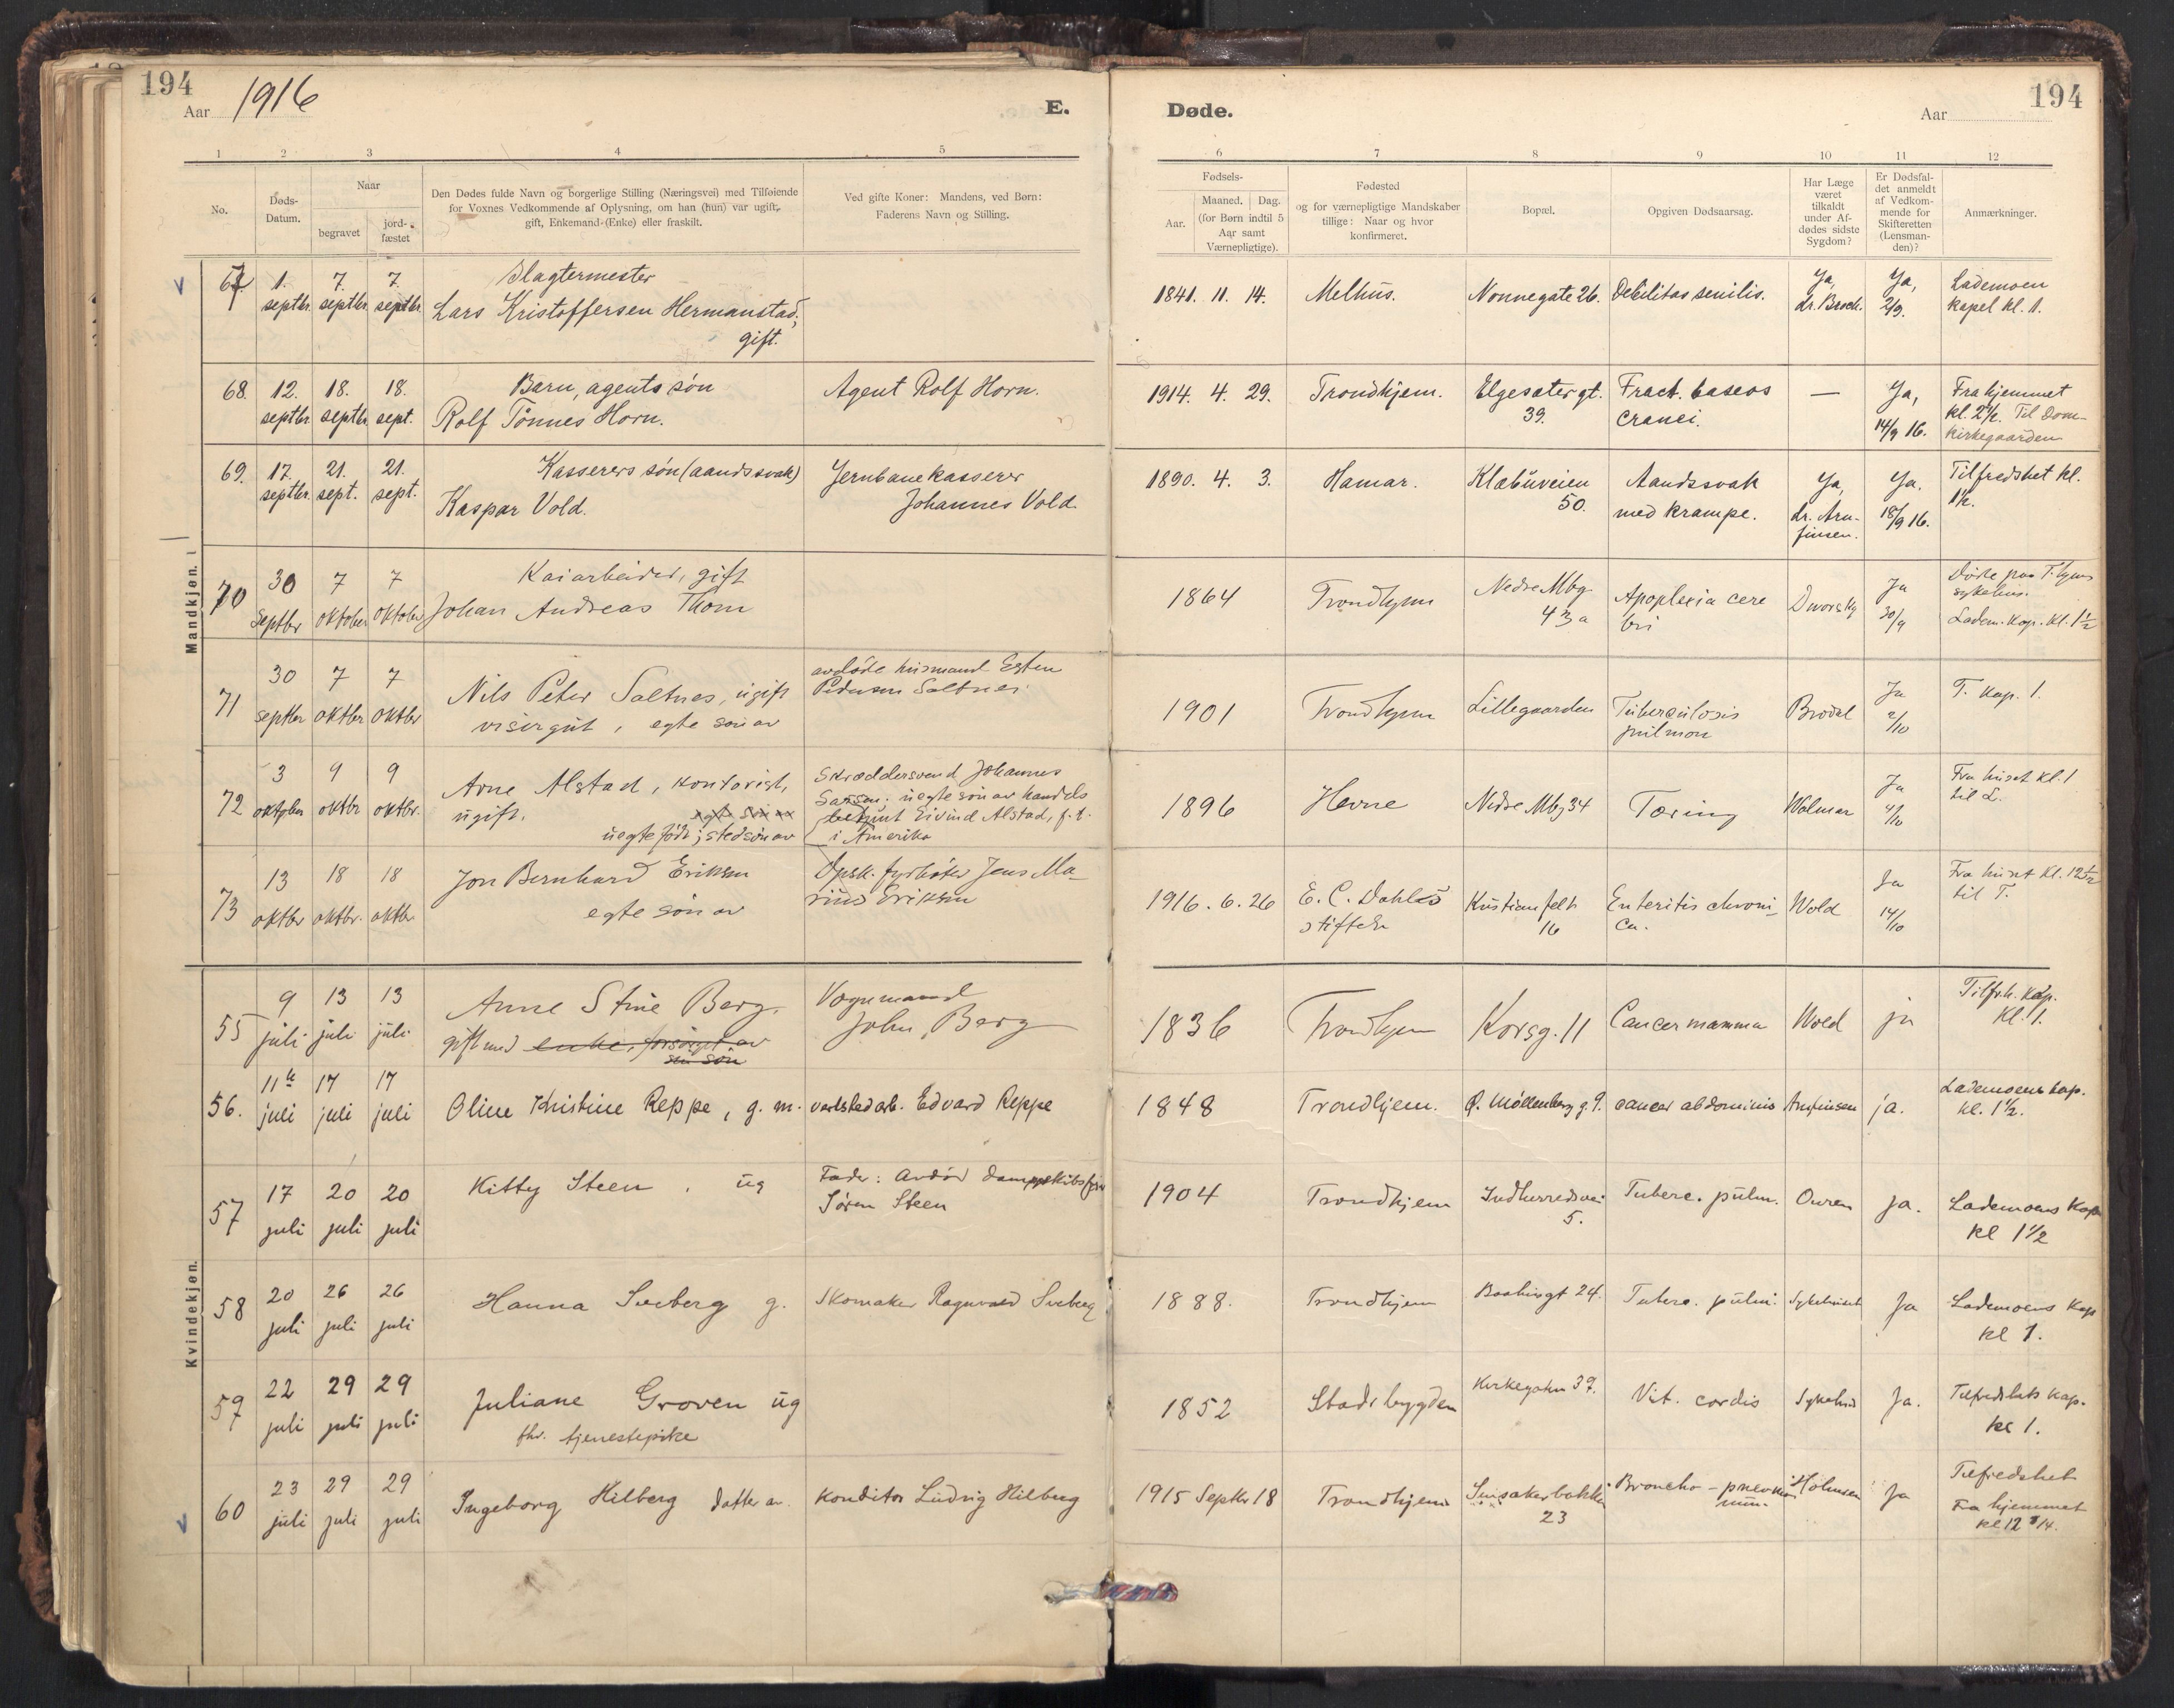 194
Aar 1916
E.
Døde.
Aar
194
1 2 3 4 5
6 7 8 9 10 11 12
No.
Døds-
Datum.
Naar
begravet
jord-
fæstet
Den Dødes fulde Navn og borgerlige Stilling (Næringsvei) med Tilføiende
for Voxnes Vedkommende af Oplysning, om han (hun) var ugift,
gift, Enkemand (Enke) eller fraskilt.
Ved gifte Koner: Mandens, ved Børn:
Faderens Navn og Stilling.
Fødsels-
Aar.
Maaned. Dag.
(for Børn indtil 5
Aar samt
Værnepligtige).
Fødested
og for værnepligtige Mandskaber
tillige: Naar og hvor
konfirmeret.
Bopæl.
Opgiven Dødsaarsag.
Har Læge
været
tilkaldt
under Af-
dødes sidste
Sygdom?
Er Dødsfal-
det anmeldt
af Vedkom-
mende for
Skifteretten
(Lensman-
den)?
Anmærkninger.
Mandkjøn.
67 1. septbr. 7. septbr. 7. septbr.
Slagtermester
Lars Kristoffersen Hermanstad,
gift.
1841. 11. 14. Melhus. Nonnegate 26. Debilitas senilis.
Ja, dr. Brock.
Ja, 2/9.
Lademoen
kapel kl. 1.
68. 12. septbr. 18. septbr. 18. sept.
Barn, agents søn
Rolf Tønnes Horn.
Agent Rolf Horn.
1914. 4. 29. Trondhjem. Elgesæter gt.
39.
Fract. baseos
cranei.
—
Ja,
14/9 16.
Fra hjemmet
kl. 2 1/2. Til Dom-
kirkegaarden
69. 17. septbr. 21. sept. 21. sept.
Kasserers søn (aandssvak)
Kaspar Vold.
Jernbanekasserer
Johannes Vold.
1890. 4. 3. Hamar. Klæbuveien
50.
Aandssvak
med krampe.
Ja,
dr. Arn-
finsen.
Ja.
18/9 16.
Tilfredshet kl.
1 1/2.
70 30 Septbr 7 oktober 7 oktober
Kaiarbeider, gift
Johan Andreas Thom
1864 Trondhjem Nedre Mbg
43a
Apoplexia cere
bri
Ja
30/9
Døde paa T.hjems
sykehus.
Ladem. Kap. kl. 1 1/2
71 30 septbr 7 oktbr 7 oktbr
Nils Peter Saltnes, ugift
visergut, egte søn av
avdøde husmand Esten
Pedersen Saltnes
1901 Trondhjem Lillegaarden Tuberculosis
pulmon
Brodal
Ja
2/10
T. kap. 1.
72 3 oktober 9 oktbr 9 oktbr.
Arne Alstad, kontorist,
ugift. egte søn av
uegte født; stedsøn av
Skræddersvend Johannes
uegte søn av handels
betjent Eivind Alstad, f.t.
i Amerika
1896 Hevne Nedre Mbg 34 Tæring Wolmar
Ja
4/10
Fra huset kl. 1
til L.
73 13 oktbr 18 oktbr. 18 oktbr
Jon Bernhard Eriksen
egte søn av
Opsk. fyrbøter Jens Ma-
rius Eriksen
1916. 6. 26 E. C. Dahls
stiftelse
Kristiansfelt
16
Enteritis chroni-
ca.
Wold
Ja
14/10
Fra huset kl. 12 1/2
til T.
Kvindekjøn.
55 9 juli 13 juli 13 juli
Anne Stine Berg.
gift med enke, forsørget av
sin søn
Vognmand
John Berg
1836 Trondhjem Korsg. 11 Cancer mamma Wold ja
Tilfrh. Kap.
Kl. 1.
56. 11te juli 17 juli 17 juli
Oline Kristine Reppe, g. m. verkstedarb. Edvard Reppe
1848 Trondhjem. Ø. Møllenberg g. 9. cancer abdominis Arnfinsen ja.
Lademoens kap.
kl. 1 1/2.
57 17 juli 20 juli 20 juli
Kitty Steen, ug
Fader: Avdød
Søren Steen
1904 Trondhjem Indherredsvei
5.
Tuberc. pulm. Owren ja.
Lademoens Kap
kl 1 1/2
58 20 juli 26 juli 26 juli
Hanna Sveberg g. Skomaker Ragnvald Sveberg
1888. Trondhjem Baahusgt 24. Tuberc. pulm. Sykehuset Ja
Lademoens Kap
kl 1.
59 22 juli 29 juli 29 juli
Juliane Groven ug
fhv. tjenestepike
1852 Stadsbygden Kirkegaten 39. Vit. cordis Sykehus Ja.
Tilfredshets kap.
kl 1.
60 23 juli 29 juli 29 juli
Ingeborg Hilberg datter av. Konditor Ludvig Hilberg
1915 Septbr 18 Trondhjem Sinsakerbakken
23
Broncho-pneumo
nien
Holmsen Ja
Tilfredshet
Fra hjemmet
kl 12 3/4.